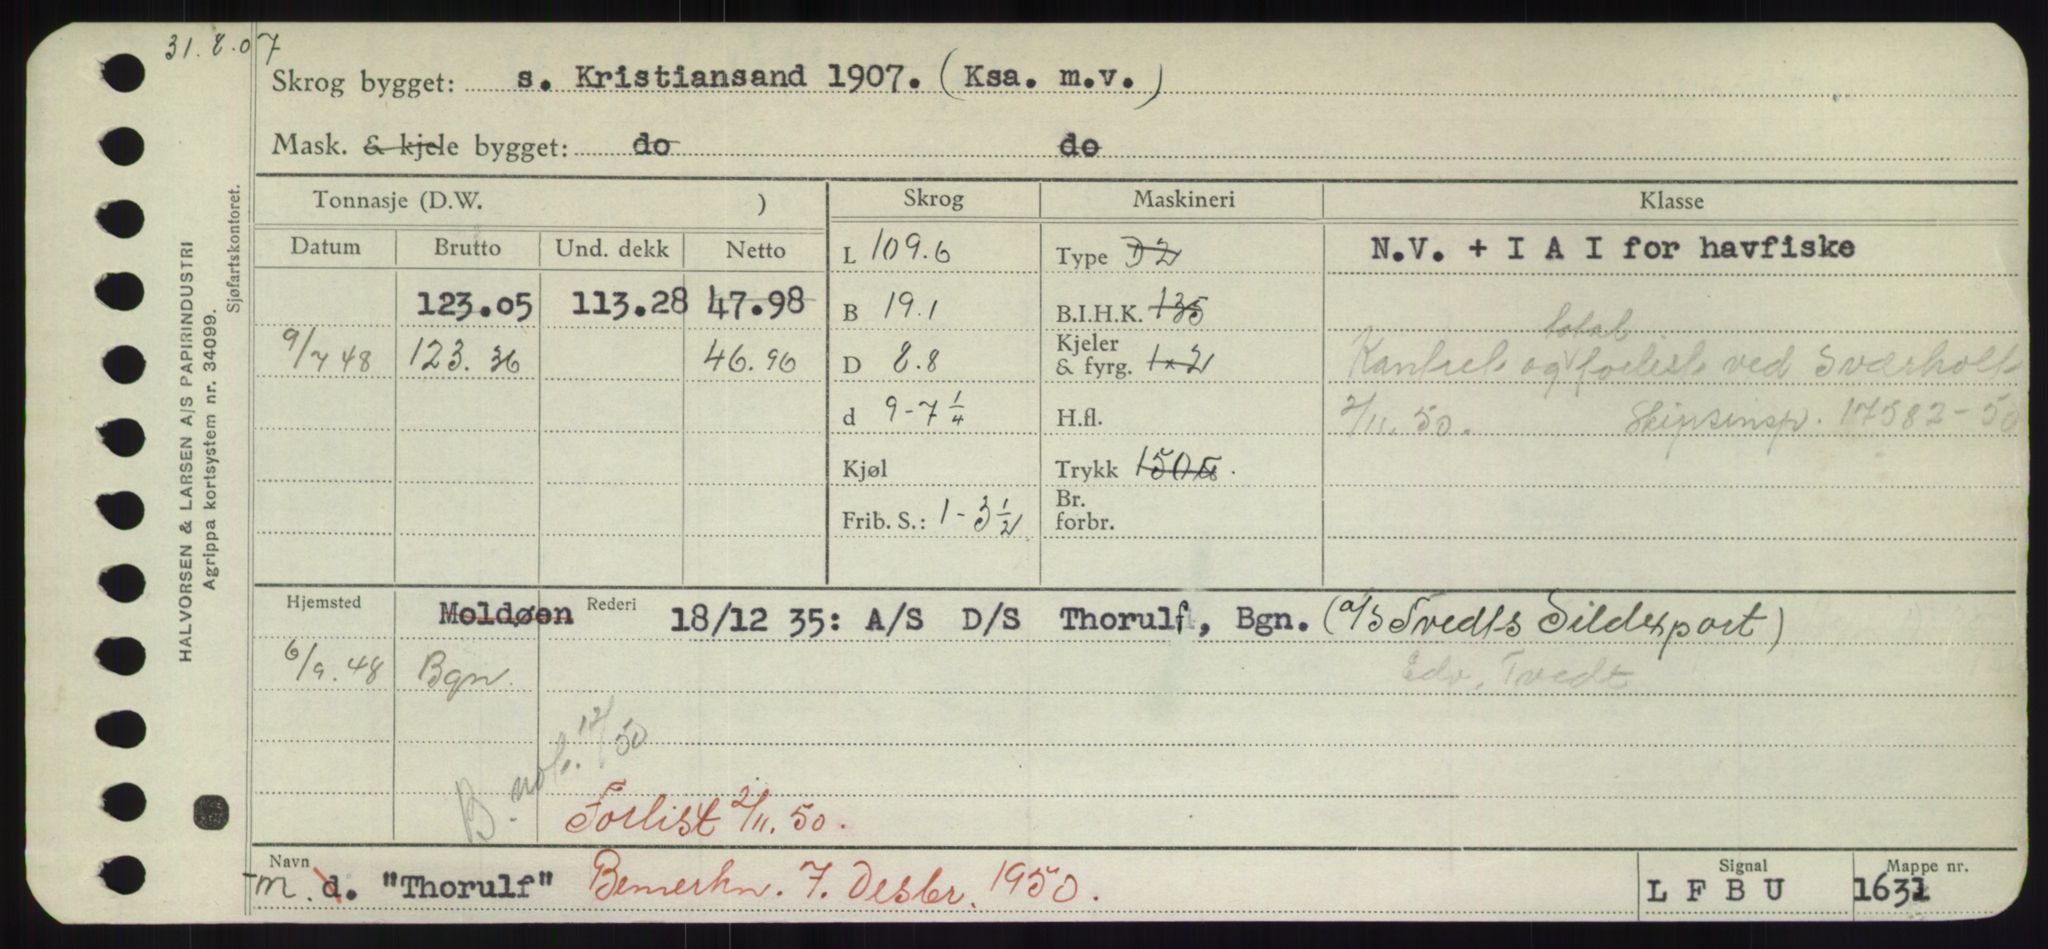 31.8.07
Skrog bygget: s. Kristiansand 1907. (Ksa. m.v.)
Mask. & kjele bygget: do do
HALVORSEN & LARSEN A/S PAPIRINDUSTRI
Agrippa kortsystem nr. 34099.
Sjøfartskontoret.
Tonnasje (D.W. ) Skrog Maskineri Klasse
Datum Brutto Und. dekk Netto L 109.6 Type D2 N.V. + I A I for havfiske
123.05 113.28 47.98 B 19.1 B.I.H.K. 135
total
9/7 48 123.36 46.96 D 8.8 Kjeler & fyrg. 1x2 Kantret og forlist ved Sværholt
d 9-7 1/4 H.fl. 2/11.50. Skipsinsp. 17582-50
Kjøl Trykk 150
Frib. S.: 1-3 1/2 Br. forbr.
Hjemsted Moldøen Rederi 18/12 35: A/S D/S Thorulf, Bgn. (a/s Tvedts Sildexport)
6/9.48 Bgn. Edv. Tvedt
B. not. 12/50
Forlist 2/11.50.
Navn Signal Mappe nr.
m. d. "Thorulf" Bemerkn. 7. Desbr. 1950. L F B U 1631